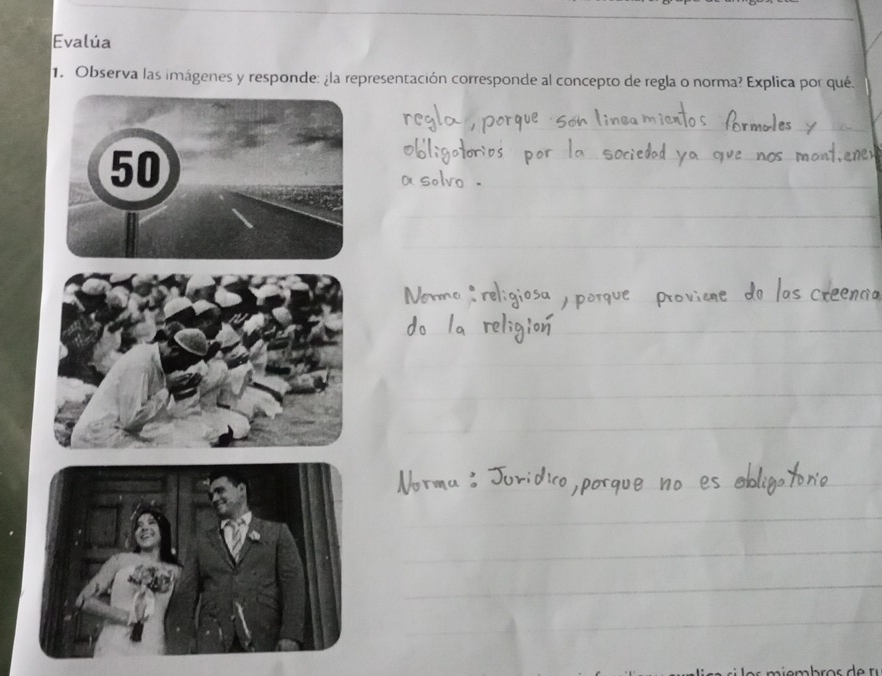 Evalúa
1. Observa las imágenes y responde: ¿la representación corresponde al concepto de regla o norma? Explica por qué.
50
regla, porque son lineamientos formales y
obligatorios por la sociedad ya que nos mantienen
a salvo.
Norma: religiosa, porque proviene do las creencia
do la religión
Norma: Juridico, porque no es obligatorio
los miembros de